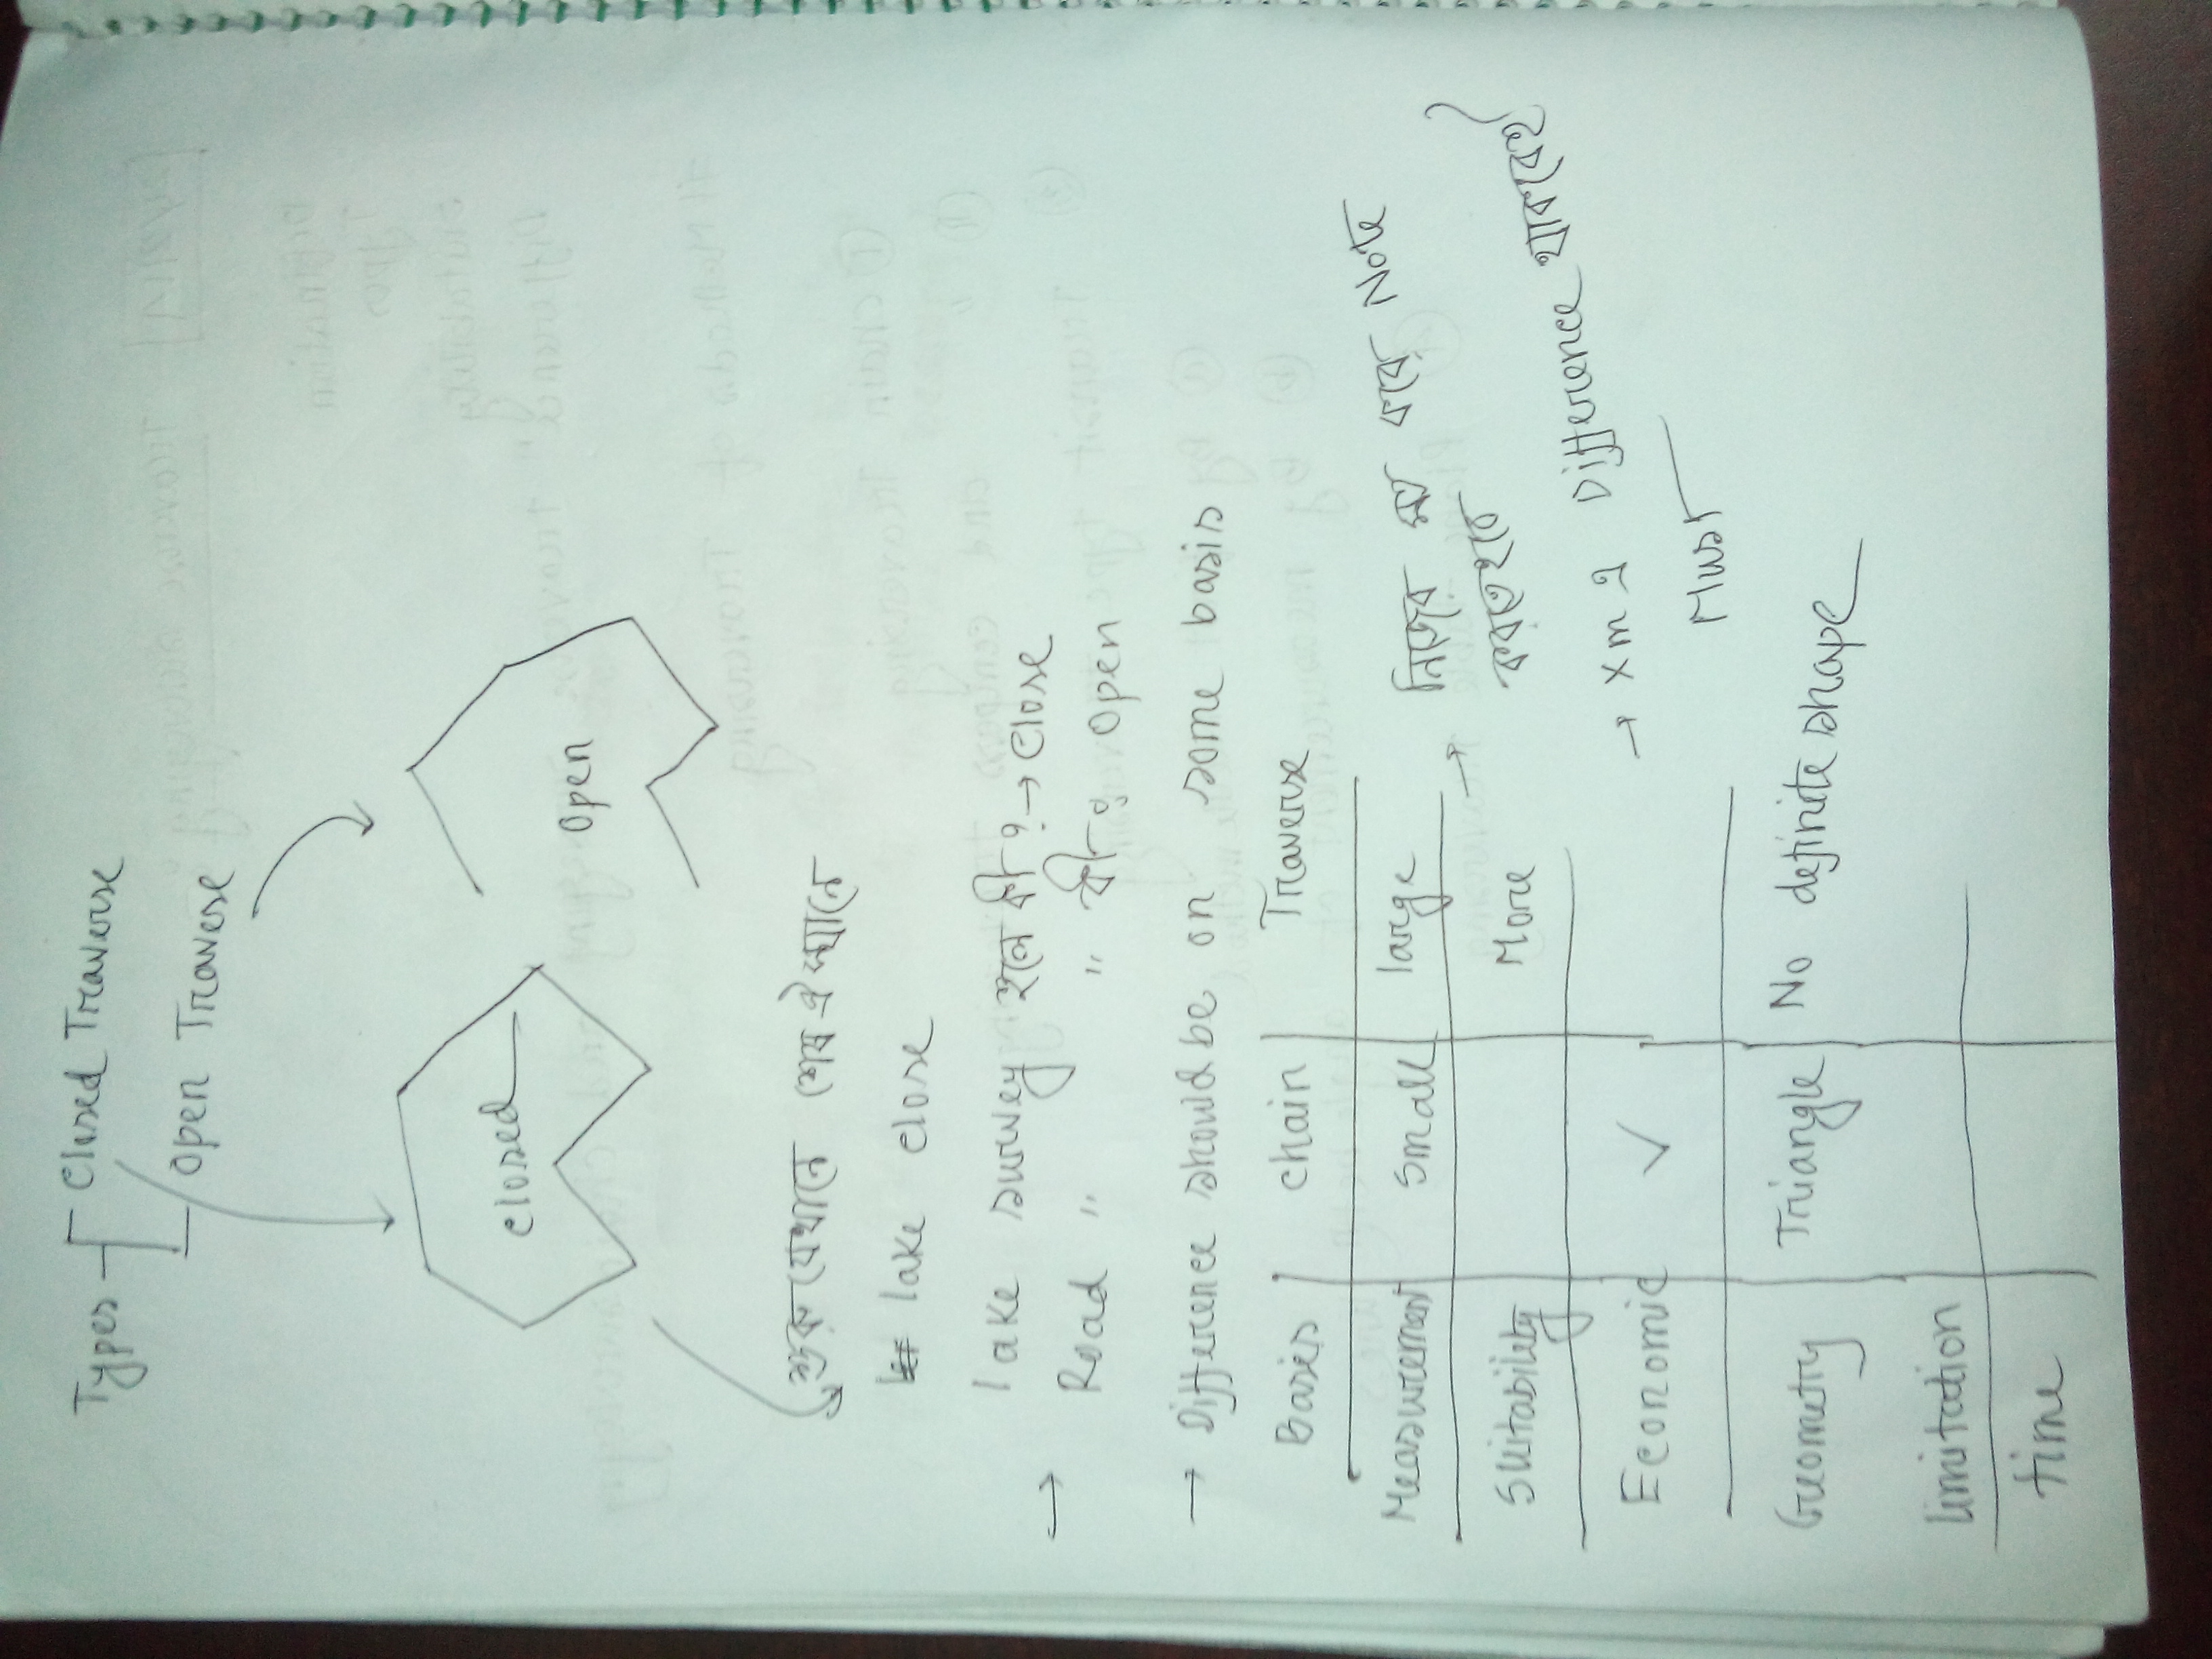 Types Closed Traverse
Open Traverse
Closed
Open
শুরু যেখানে শেষ ঐখানে
lake close
→ lake survey হলে কী? → Close
Road " " কী? Open
→ Difference should be on some basis
Basis Chain Traverse
Measurement Small large
Suitability More → নিজের মত করে Note
করতে হবে
Economic ✓ → xm এ Difference থাকবেই
Must
Geometry Triangle No definite shape
limitation
time